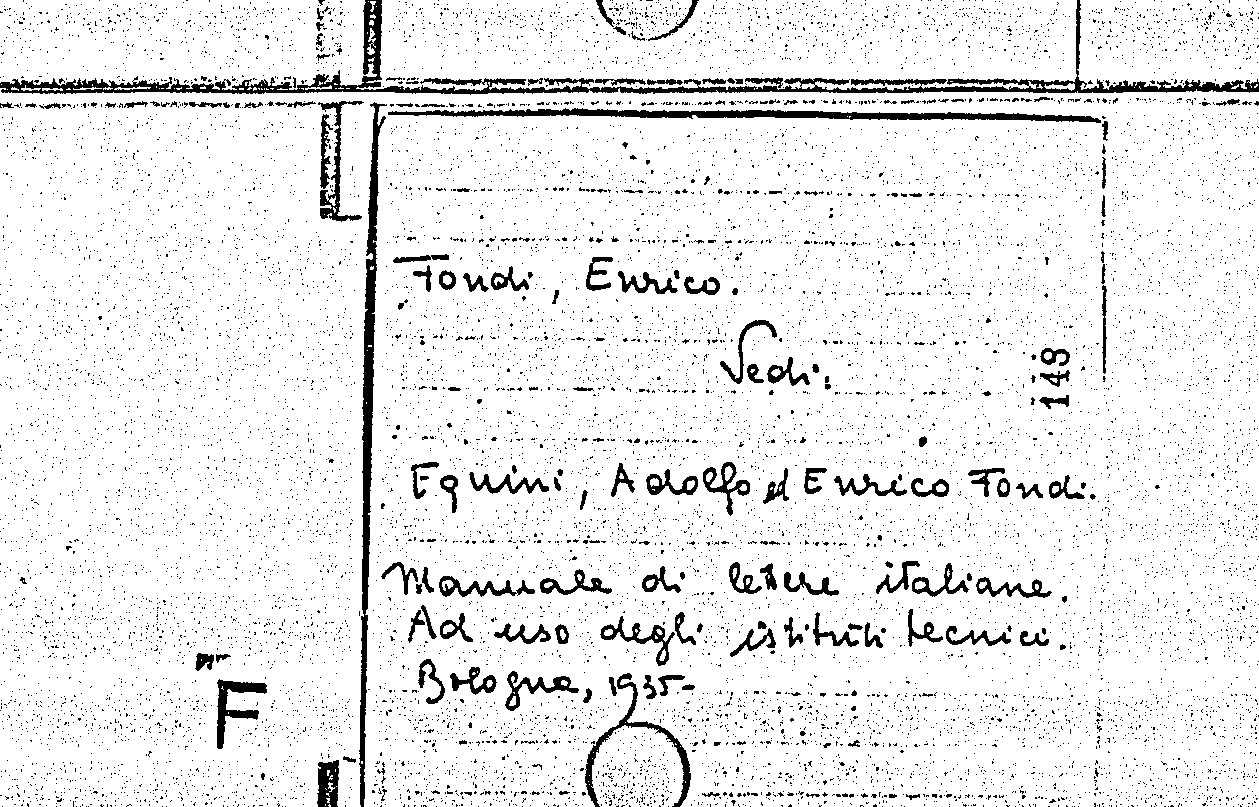 Fondi, Enrico.
Vedi:
149
Equini, Adolfo ed Enrico Fondi.
Manuale di lettere italiane.
Ad uso degli istituti tecnici.
Bologna, 1935-
F